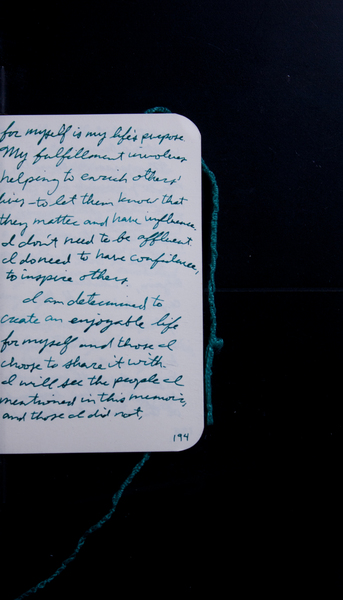 for myself is my life's purpose.
My fulfillment involves
helping to enrich others'
lives - to let them know that
they matter and have influence.
I don't need to be affluent.
I do need to have confidence,
to inspire others.
I am determined to
create an enjoyable life
for myself and those I
choose to share it with.
I will see the people I
mentioned in this memoir,
and those I did not,
194